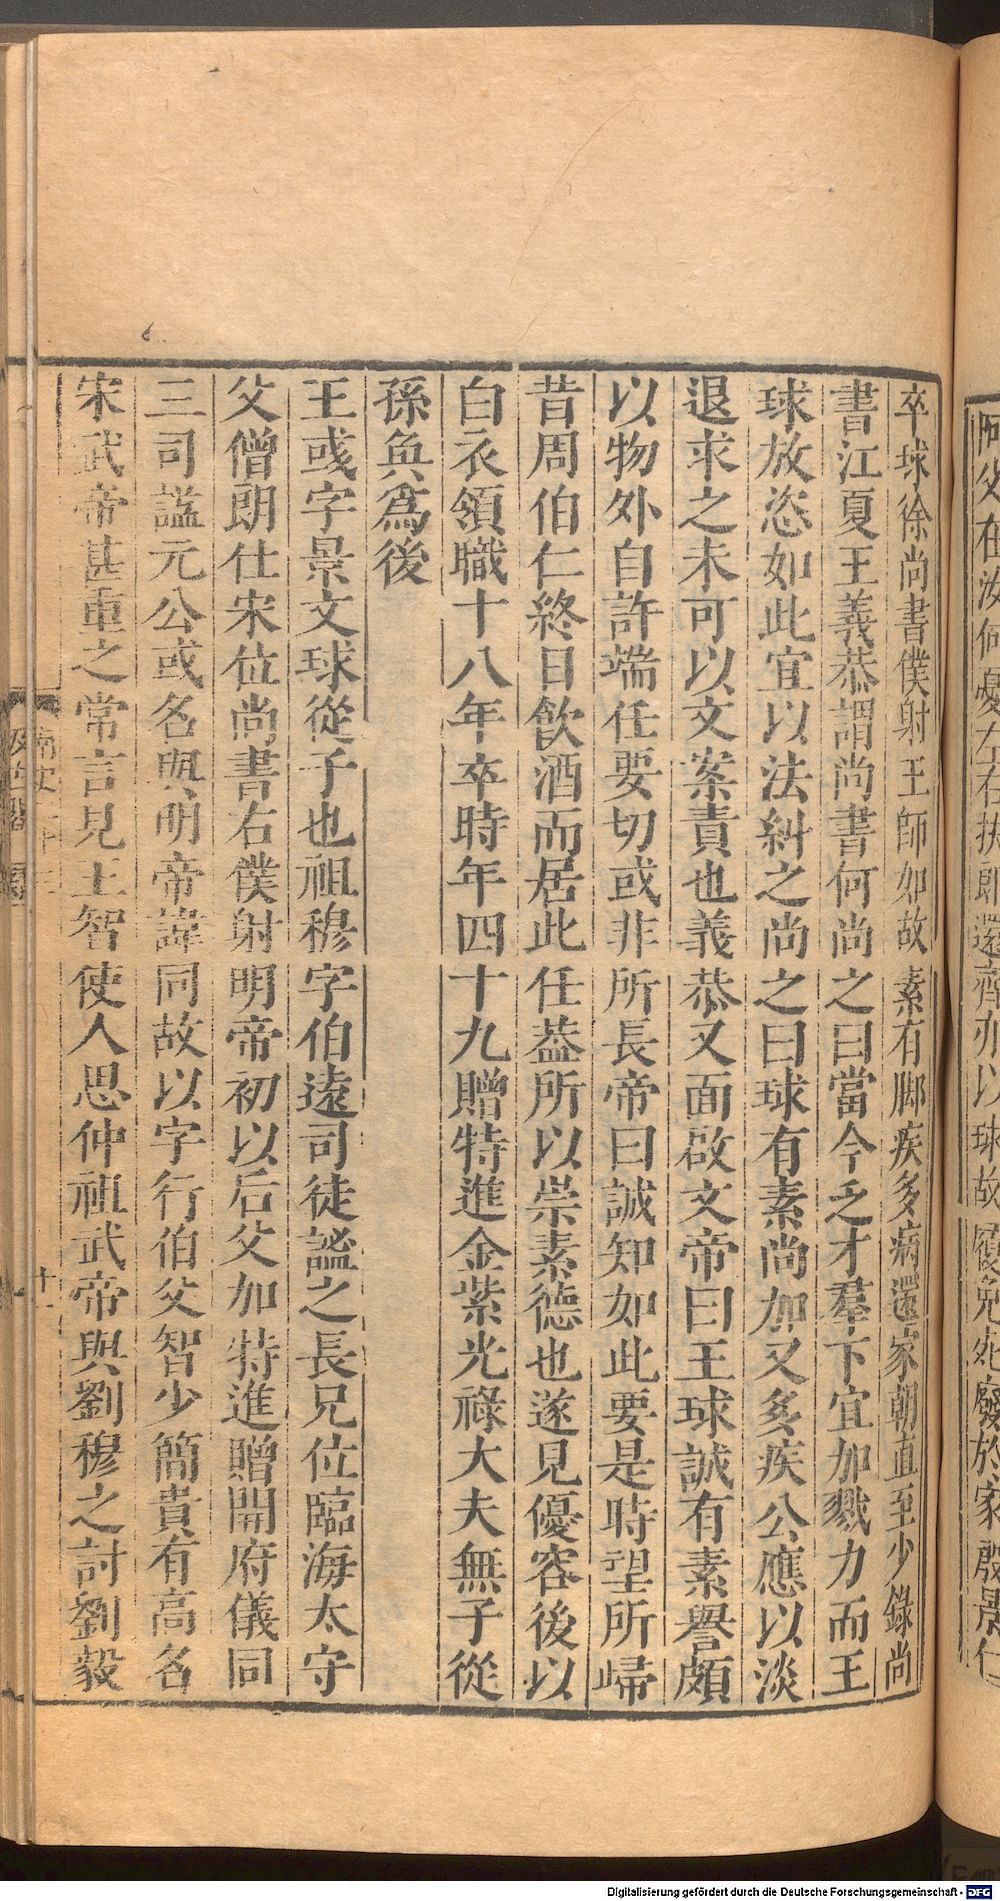 卒球徐尚書僕射王師如故素有脚疾多病還家朝直至少錄尚
書江夏王義恭謂尚書何尚之曰當今乏才羣下宜加戮力而王
球放恣如此宜以法糾之尚之曰球有素尚加又多疾公應以淡
退求之未可以文案責也義恭又面啟文帝曰王球誠有素譽頗
以物外自許端任要切或非所長帝曰誠知如此要是時望所歸
昔周伯仁終日飲酒而居此任葢所以崇素德也遂見優容後以
白衣領職十八年卒時年四十九贈特進金紫光祿大夫無子從
孫奐爲後
王彧字景文球從子也祖穆字伯遠司徒謐之長兄位臨海太守
父僧朗仕宋位尚書右僕射明帝初以后父加特進贈開府儀同
三司謚元公彧名與明帝諱同故以字行伯父智少簡貴有高名
宋武帝甚重之常言見王智使人思仲祖武帝與劉穆之討劉毅
南史
十一
阿父在汝何憂左右扶郎還齋亦以球故履免死廢於家殷景仁
Digitalisierung gefördert durch die Deutsche Forschungsgemeinschaft - DFG